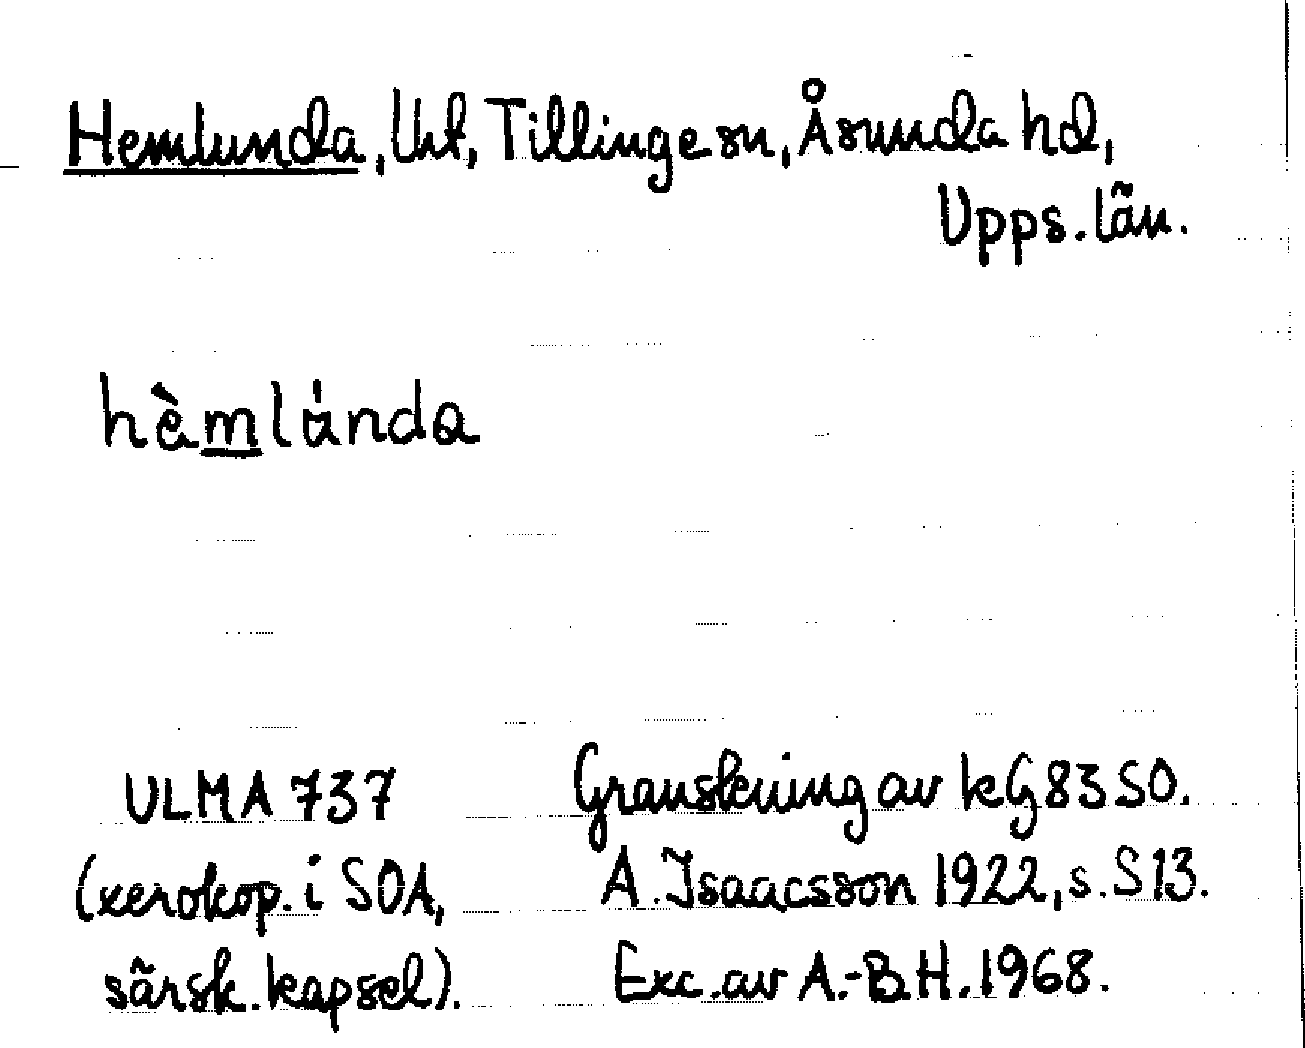 Hemlunda, lht, Tillinge sn, Åsunda hd,
Upps. län.
hèmlúnda
ULMA 737
(xerokop. i SOA,
särsk. kapsel).
Granskning av kG 83 SO.
A. Isaacsson 1922, s. S 13.
Exc. av A.-B.H. 1968.